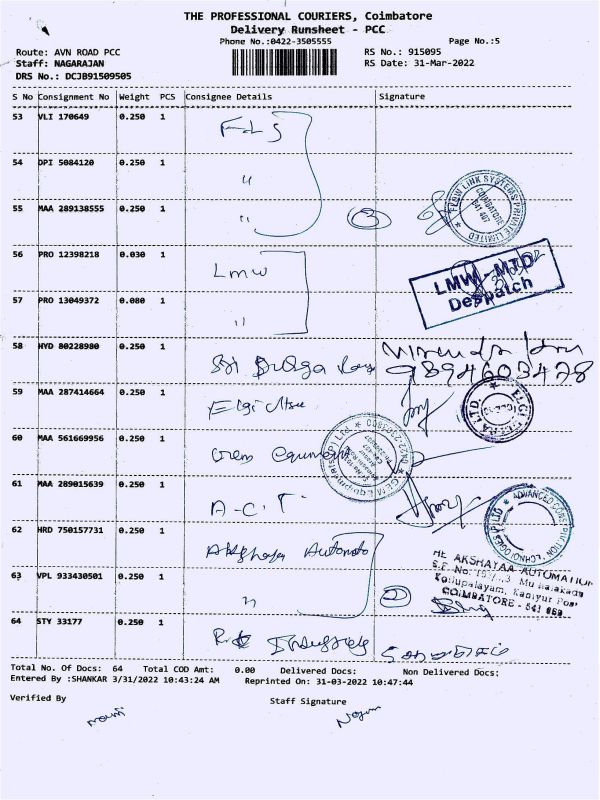 THE PROFESSIONAL COURIERS, Coimbatore
Delivery Runsheet - PCC
Phone No.:0422-3505555 Page No.:5
Route: AVN ROAD PCC RS No.: 915095
Staff: NAGARAJAN RS Date: 31-Mar-2022
DRS No.: DCJB91509505
S No Consignment No Weight PCS Consignee Details Signature
53 VLI 170649 0.250 1
54 DPI 5084120 0.250 1 "
FLOW LINK SYSTEMS PRIVATE LIMITED
COIMBATORE
641 407
55 MAA 289138555 0.250 1 " 3
56 PRO 12398218 0.030 1 Lmw
LMW-MTD
Despatch
57 PRO 13049372 0.080 1 "
58 HYD 80228980 0.250 1 Sri Durga
9894603478
59 MAA 287414664 0.250 1 Elgi
60 MAA 561669956 0.250 1 Gem Equipment
61 MAA 289015639 0.250 1 A.C.T.
ADVANCED CONSTRUCTION
TECHNOLOGIES (P) LTD
62 HRD 750157731 0.250 1 Akshaya Automato
AKSHAYAA AUTOMATION
Kollupalayam, Kaniyur Post
COIMBATORE - 641 659
63 VPL 933430501 0.250 1 " 2
64 STY 33177 0.250 1
Total No. Of Docs: 64 Total COD Amt: 0.00 Delivered Docs: Non Delivered Docs:
Entered By :SHANKAR 3/31/2022 10:43:24 AM Reprinted On: 31-03-2022 10:47:44
Verified By Staff Signature